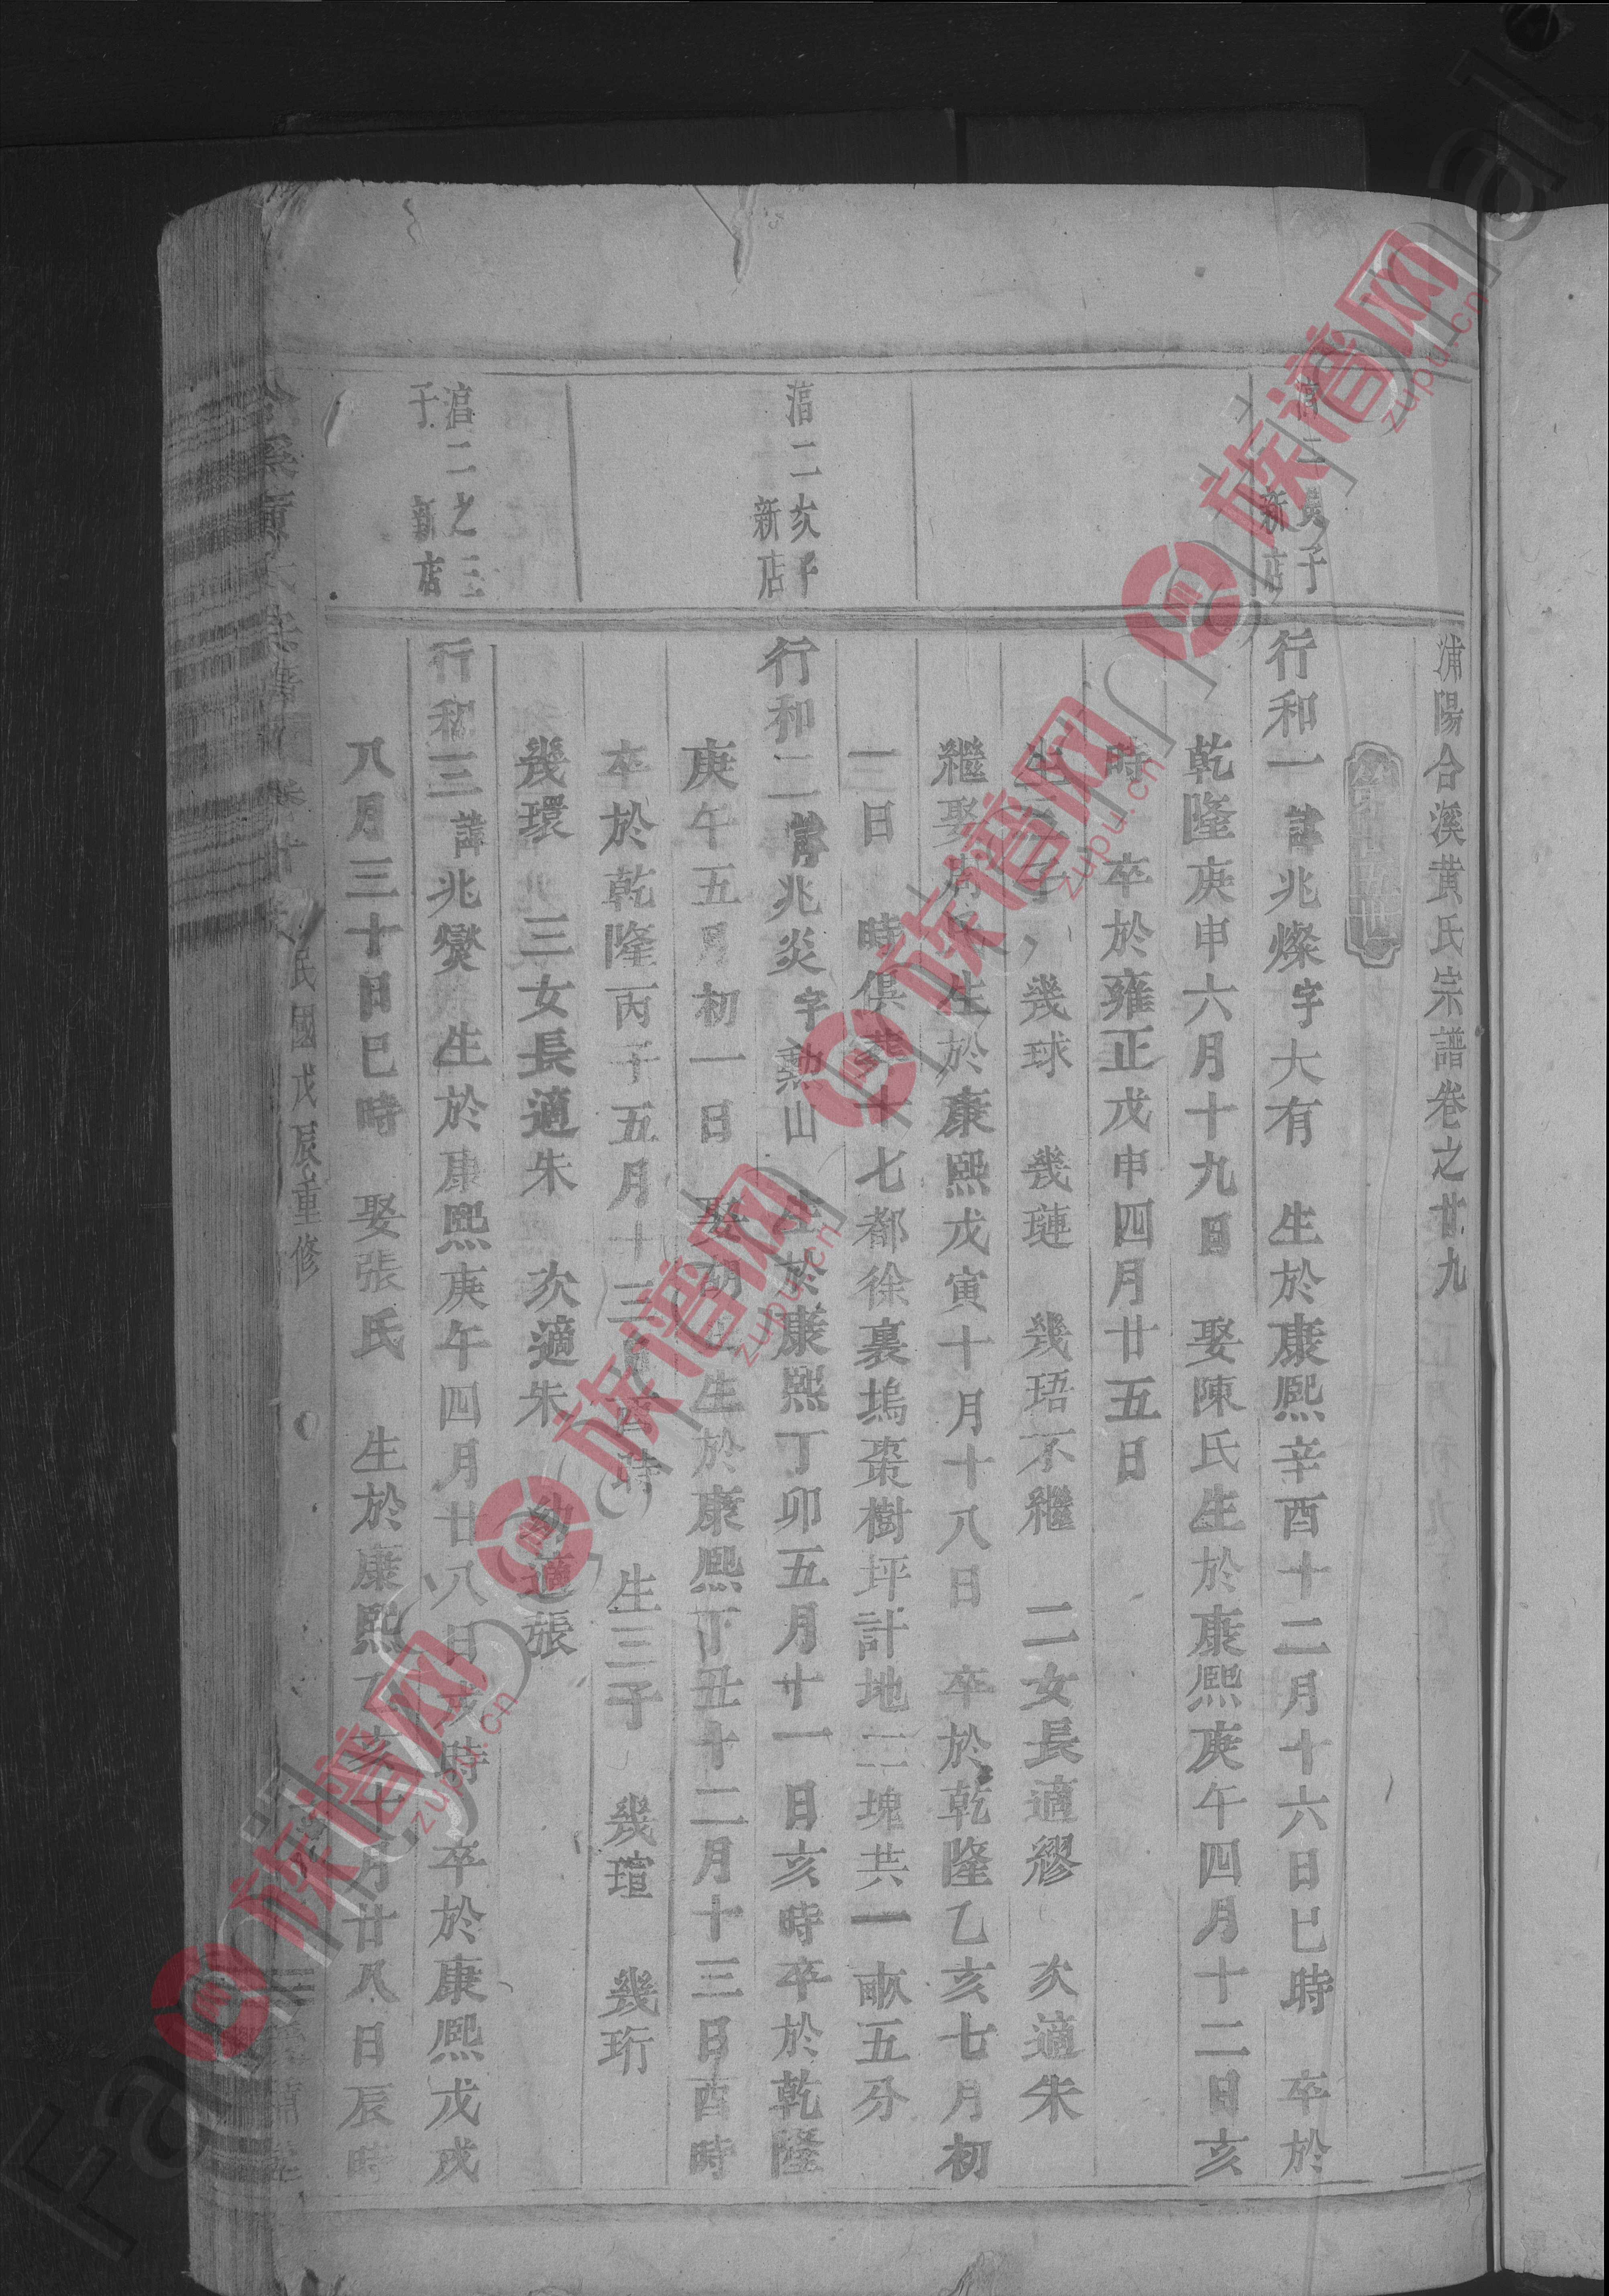 浦陽合溪黄氏宗譜卷之廿九
子
新店
行和一諱兆燦字大有 生於康熙辛酉十二月十六日巳時 卒於
乾隆庚申六月十九日 娶陳氏生於康熙庚午四月十二日亥
時 卒於雍正戊申四月廿五日
子 幾球 幾璉 幾珸不繼 二女長適繆 次適朱
繼娶 氏生於康熙戊寅十月十八日 卒於乾隆乙亥七月初
一日 時俱葬十七都徐裏塢棗樹坪計地二塊共一畝五分
湆二亥子
新店
行和二諱兆炎字勲山 生於康熙丁卯五月十一日亥時卒於乾隆
庚午五月初一日 娶胡氏生於康熙丁丑十二月十三日酉時
卒於乾隆丙子五月十三日酉時 生三子 幾瑄 幾珩
幾環 三女長適朱 次適朱 幼適張
湆二之三
子 新店
行和三諱兆爕 生於康熙庚午四月廿八日 時 卒於康熙戊戌
八月三十日巳時 娶張氏 生於康熙乙亥十月廿八日辰時
民國戊辰重修
族谱网
zupu.cn
族谱网
zupu.cn
族谱网
zupu.cn
族谱网
zupu.cn